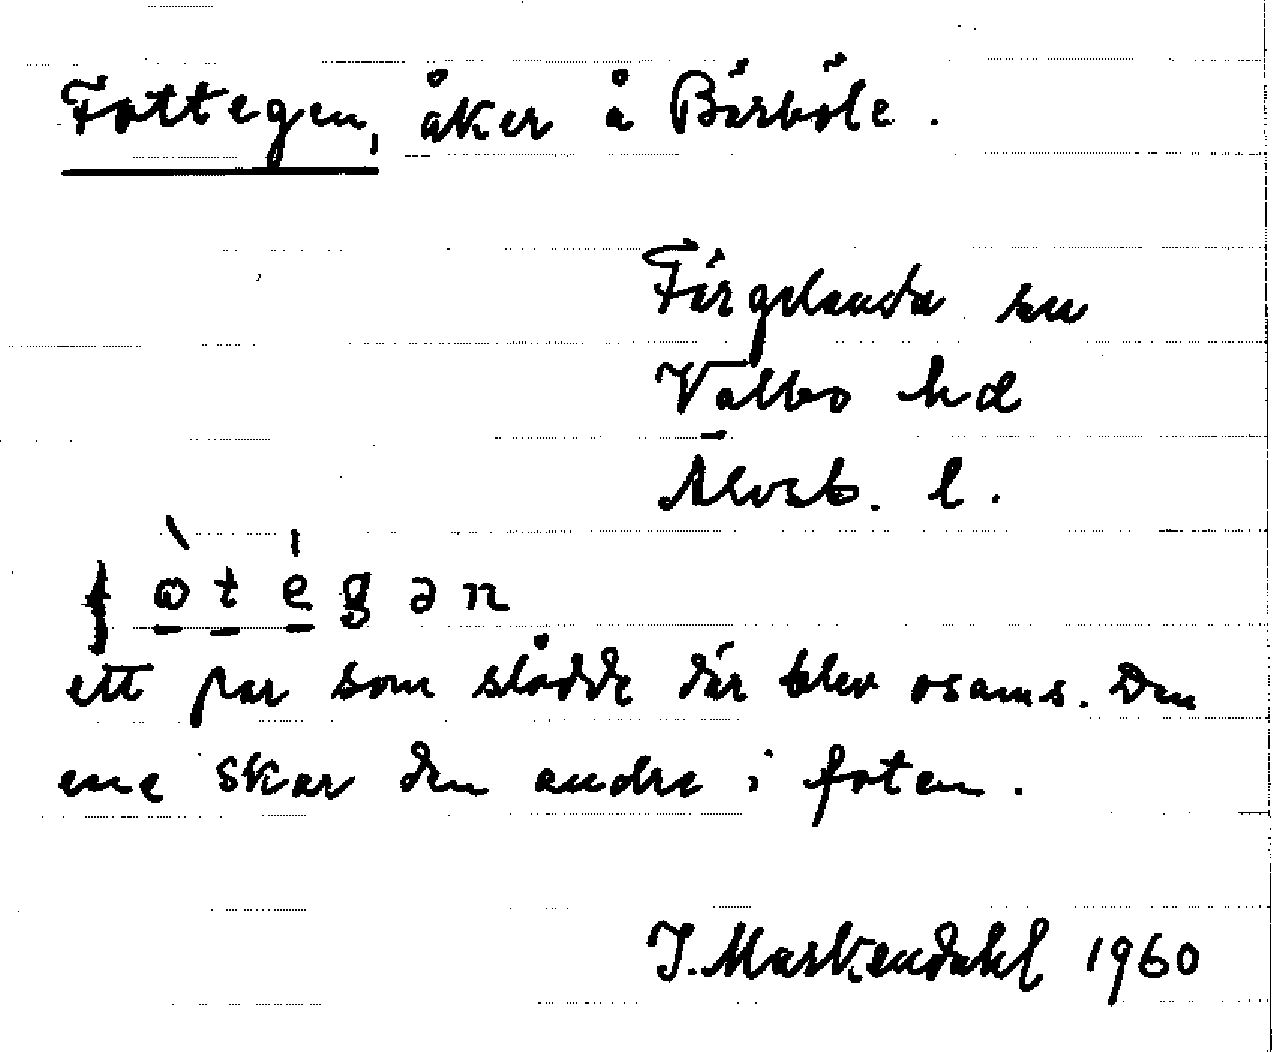 Fottegen, åker å Bärböle.
Färgelanda sn
Valbo hd
Älvsb. l.
f ò t é g ə n
ett par som slådde där blev osams. Den
ene skar den andre i foten.
I. Markendahl 1960